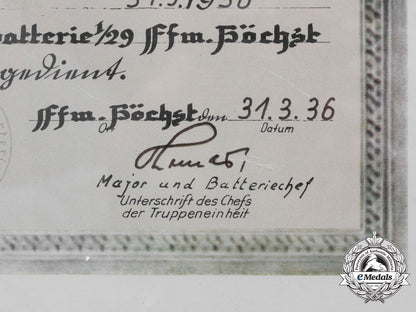 31.3.1936
batterie 1/29 Ffm.-Höchst
gedient.
Ffm.-Höchst den 31.3.36
Ort Datum
Major und Batteriechef
Unterschrift des Chefs
der Truppeneinheit
eMedals